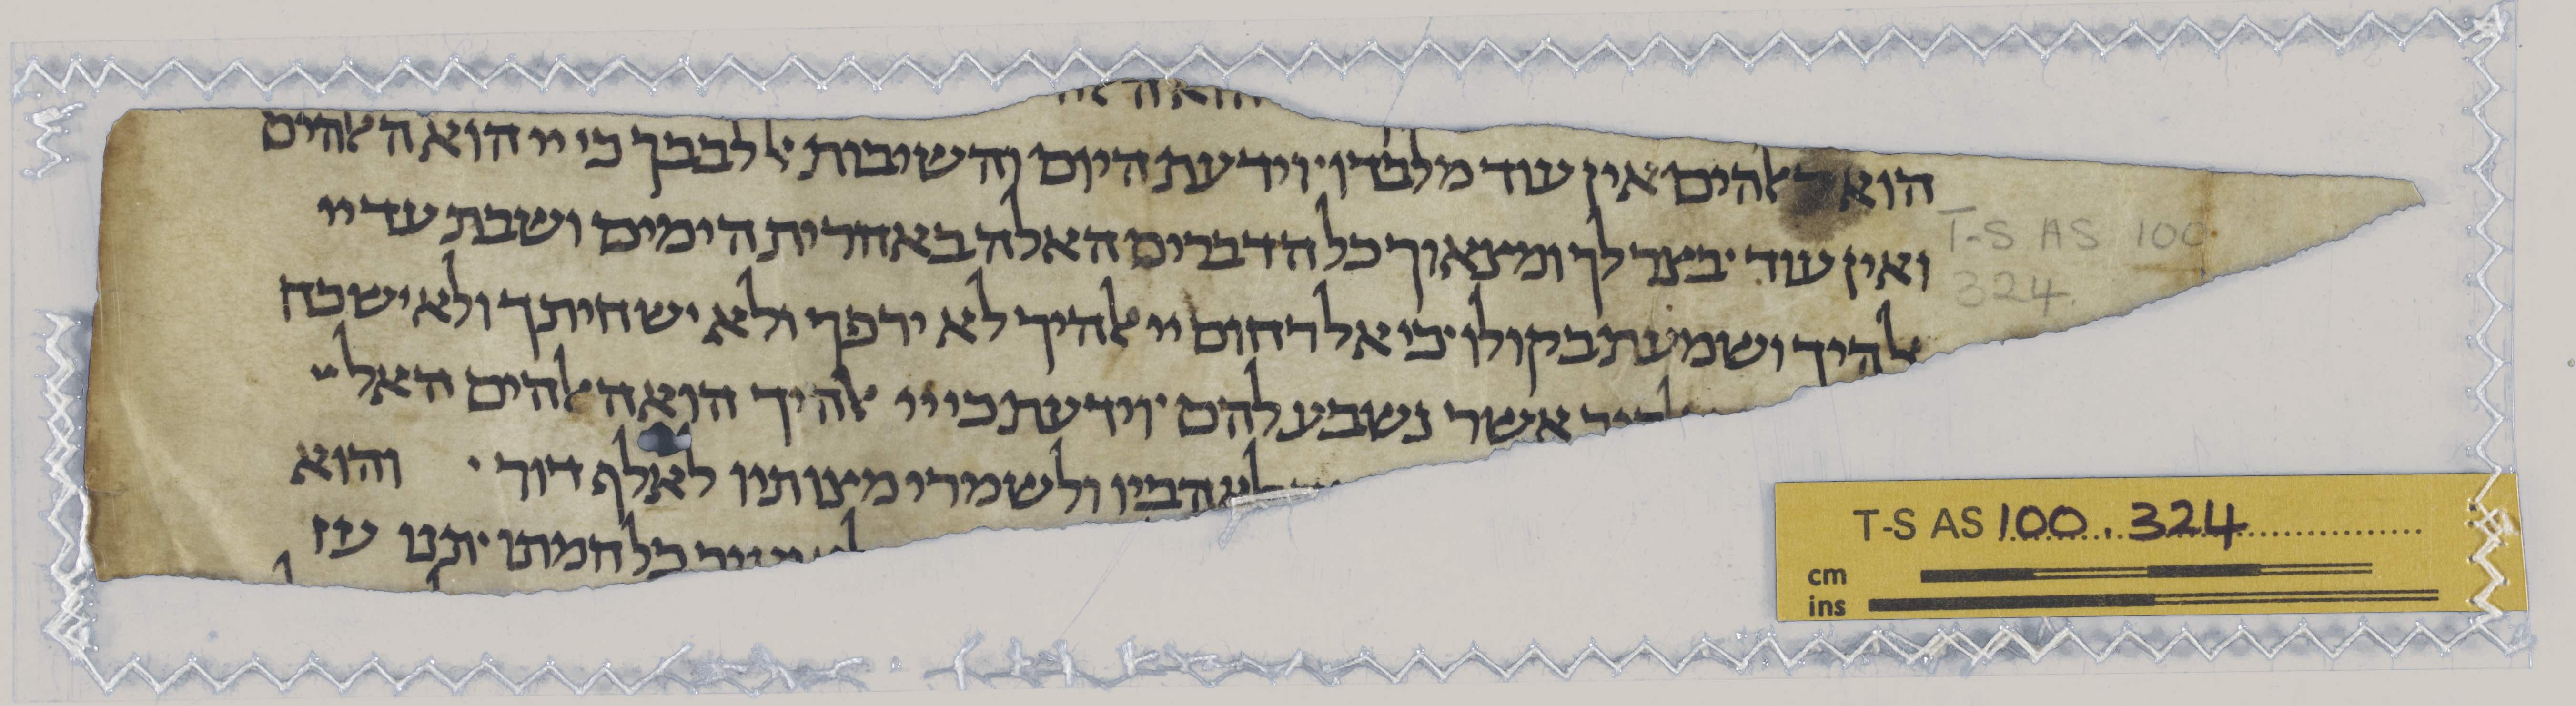 הוא האלהים
הוא האלהים אין עוד מלבדו· וידעת היום והשיבות אל לבבך כי יי הוא האלהים
ואין עוד· בצר לך ומצאוך כל הדברים האלה באחרית הימים ושבת עד יי
אלהיך ושמעת בקולו· כי אל רחום יי אלהיך לא ירפך ולא ישחיתך ולא ישכח
אשר נשבע להם· וידעת כי יי אלהיך הוא האלהים האל
לאהביו ולשמרי מצותיו לאלף דור· והוא
כלחמתו· תנו עוז
T-S AS 100
324
T-S AS 100.324
cm
ins